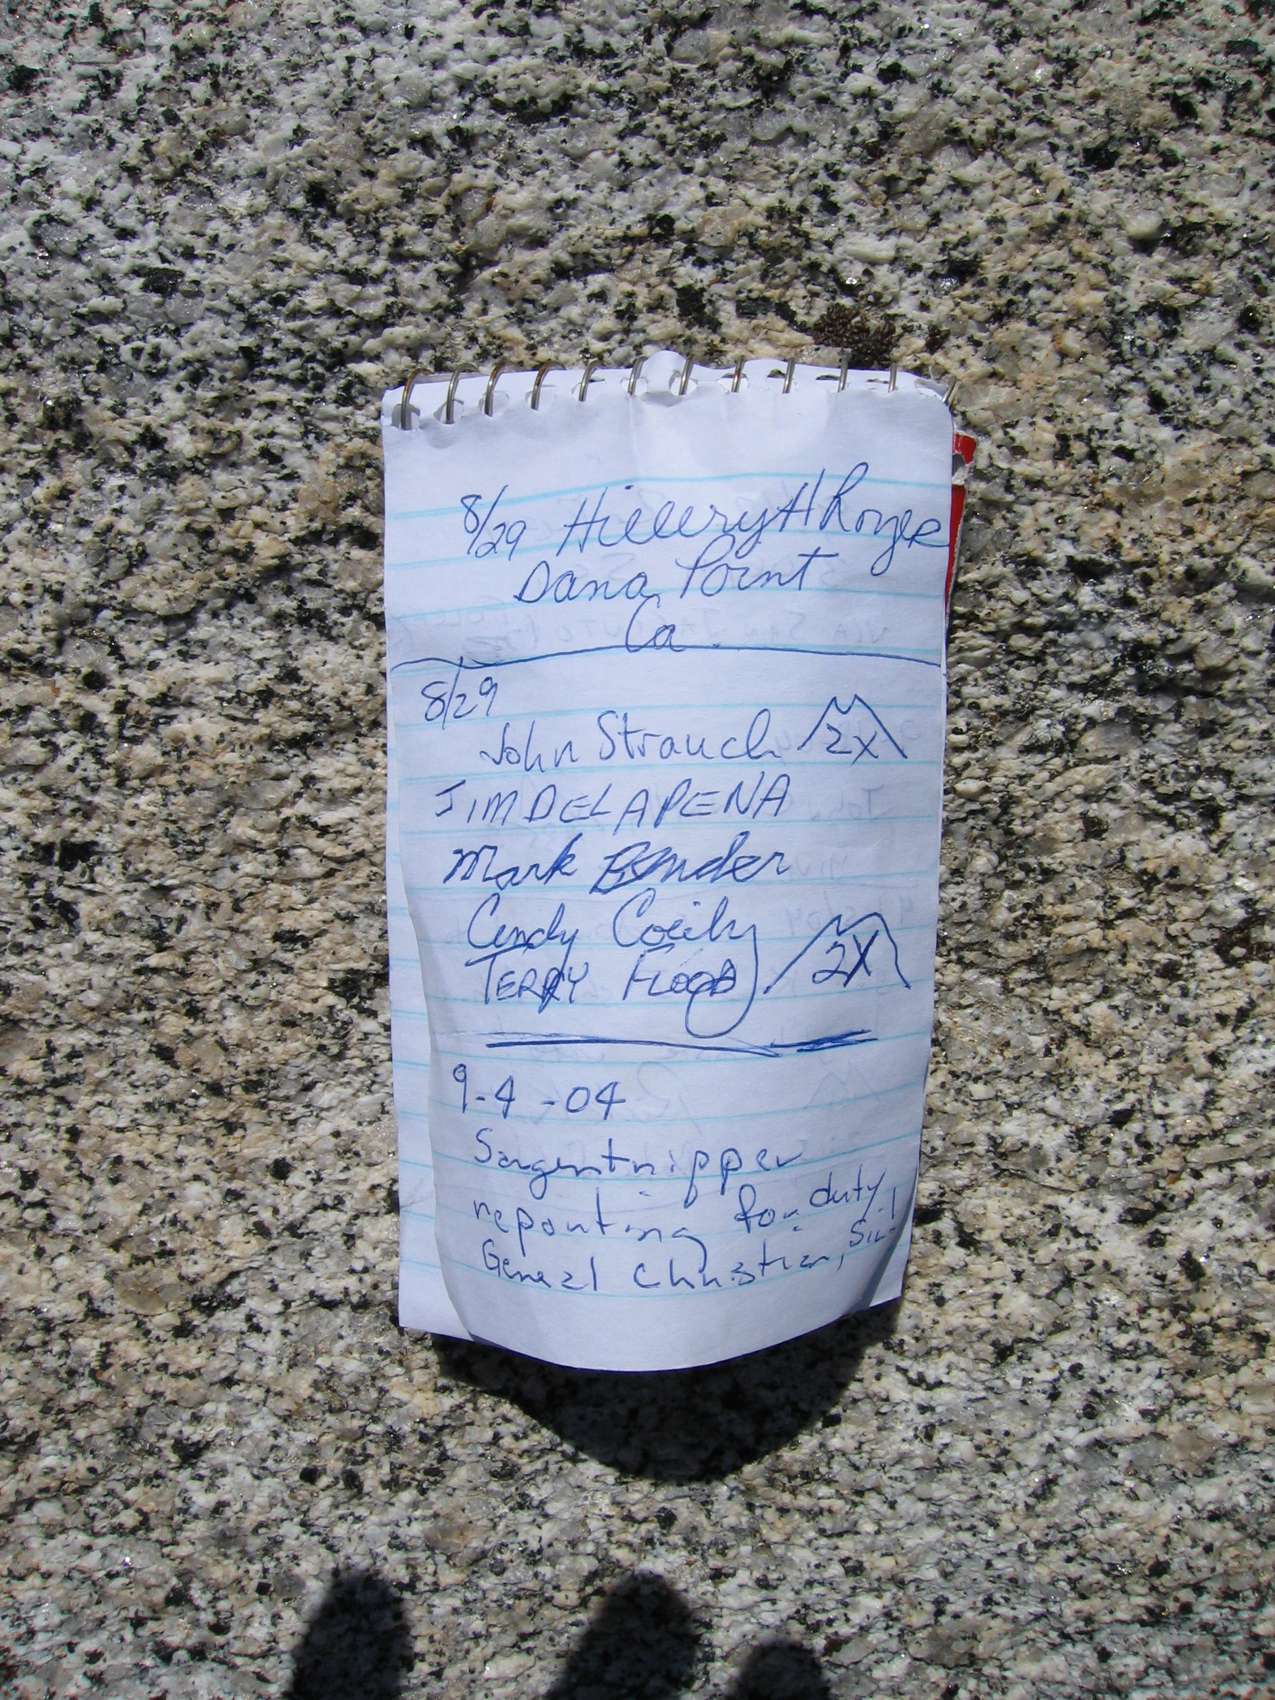 8/29 Hillery H Royer
Dana Point
Ca.
8/29
John Strauch 2X
JIM DELAPENA
Mark Bender
Cindy
TERRY FLOOD 2X
9-4-04
Sargentnipper
reporting for duty
General Christian, Sir!